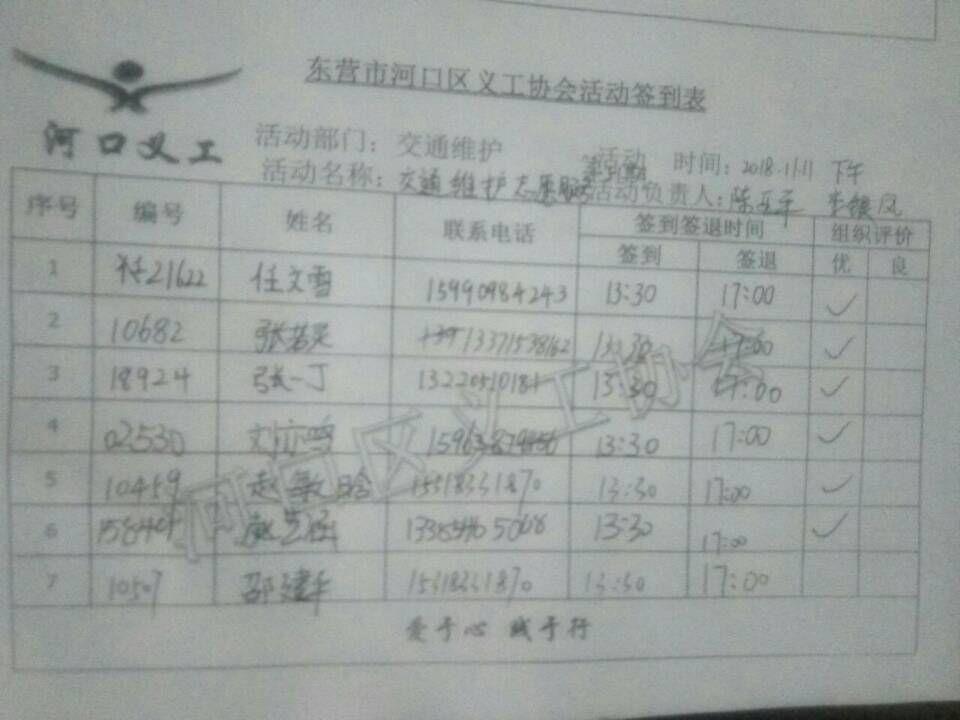 东营市河口区义工协会活动签到表
河口义工
活动部门：交通维护 活动 时间：2018.11.11 下午
活动名称：交通维护志愿服务 活动负责人：陈 李 凤
序号 编号 姓名 联系电话 签到签退时间 组织评价
签到 签退 优 良
1 21622 任文雪 15990984243 13:30 17:00 ✓
2 10682 张若 13371538162 13:30 17:00 ✓
3 18924 张一丁 13220510181 13:30 17:00 ✓
4 02530 刘 鸣 13:30 17:00 ✓
5 10459 赵敏晗 15318331870 13:30 17:00 ✓
6 赵艺涵 13:30 17:00 ✓
7 10507 邵建华 15318331870 13:30 17:00
河口区义工协会
爱于心 践于行